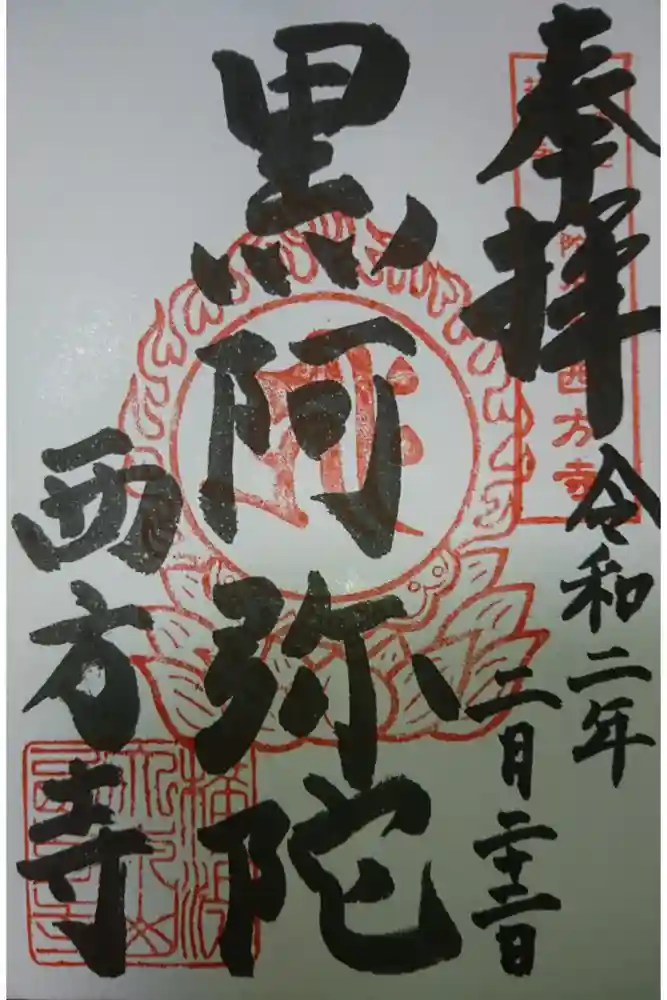 奉拝
令和二年
二月二十二日
黒阿弥陀
西方寺
西方寺